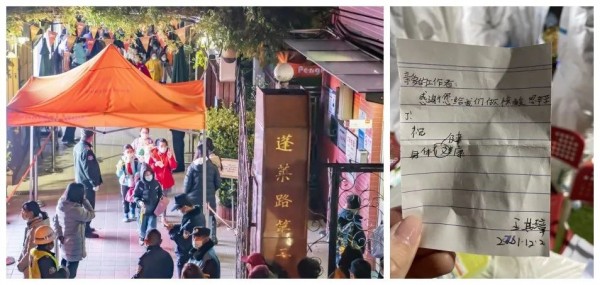 Peng
蓬莱路第二
亲爱的工作者
感谢您给我们做核酸，您辛苦
了
祝
身体健康
2021.12.2